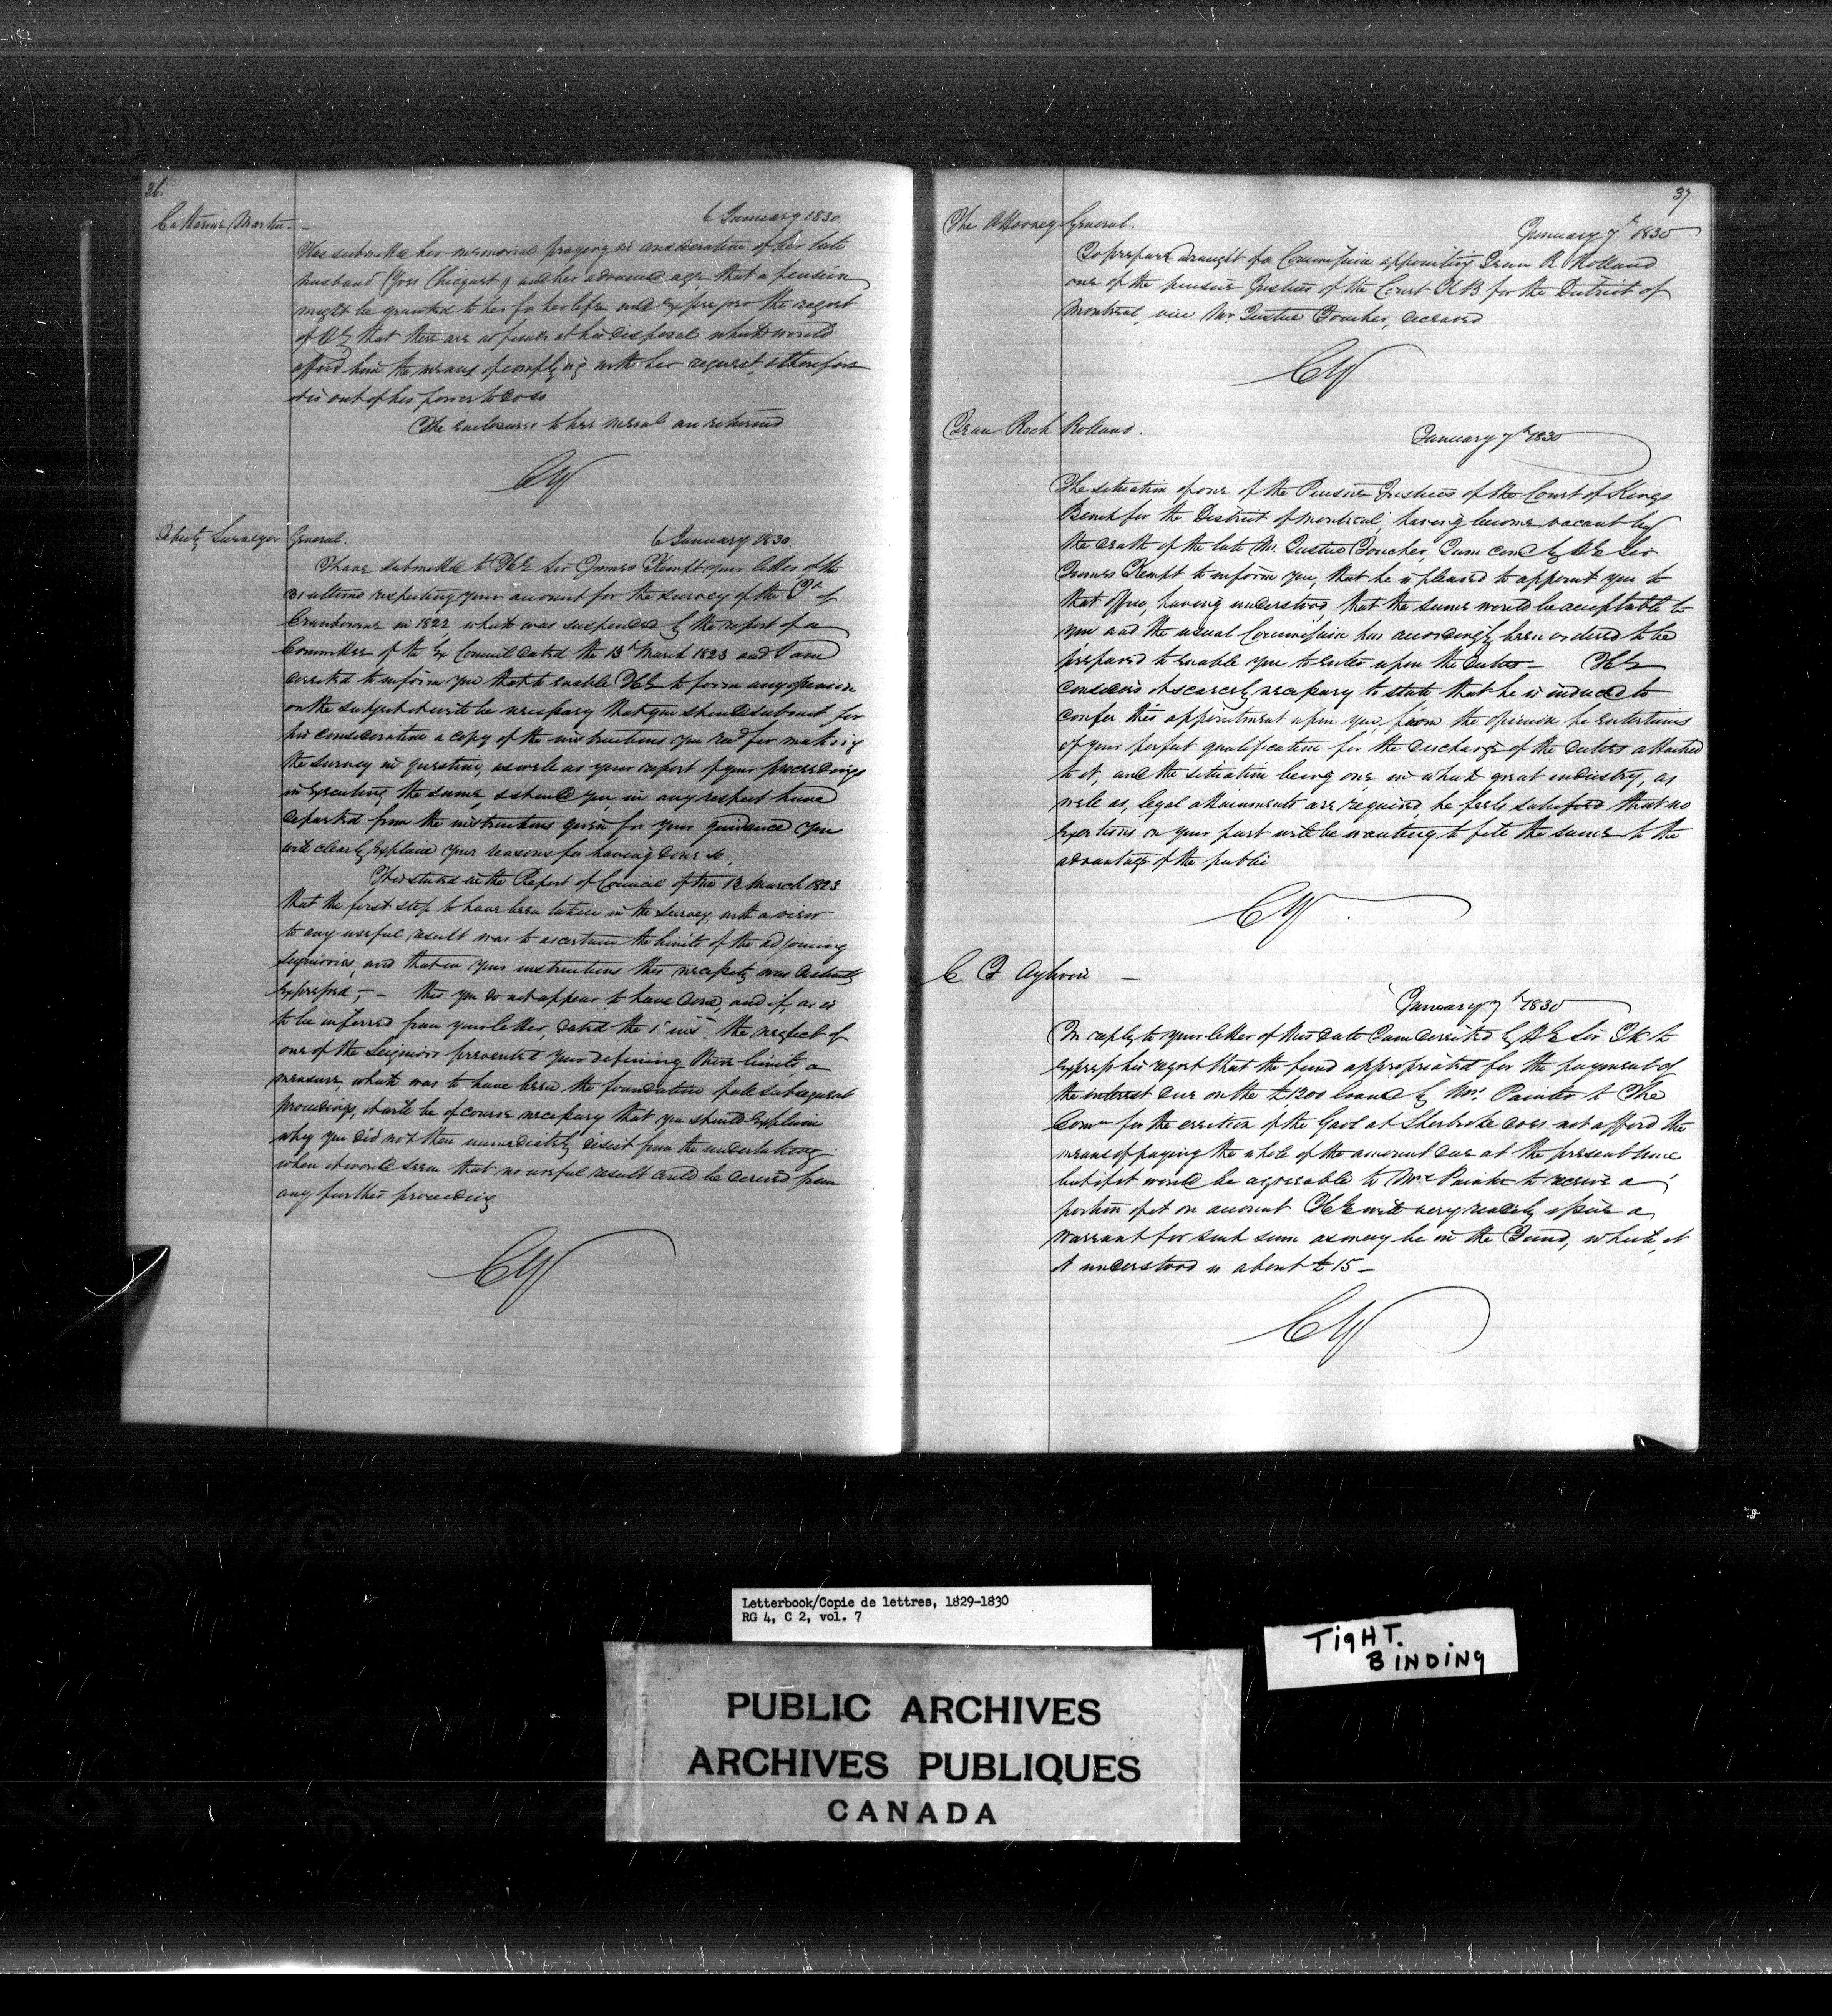 36.
Catharine Martin. -
6 January 1830.
Has submitted her memorial praying in consideration of her late
husband (Yves Chicquet) and her advanced age, that a pension
might be granted to her for her life and express pro the regret
of HE that there are no funds at his disposal which would
afford him the means of complying with her request, & therefore
it is out of his power to do so
The enclosures to her meml are returned
CY
Deputy Surveyor General.
6 January 1830.
I have submitted to HE Sir James Kempt your letter of the
31 ultimo respecting your account for the survey of the Tp of
Cranbourne in 1822 which was suspended by the report of a
Committee of the Ex Council dated the 13th March 1823 and I am
directed to inform you that to enable HE to form any opinion
on the subject it will be necessary that you should submit for
his consideration a copy of the instructions you recd for making
the survey in question, as well as your report of your proceedings
in executing the same, & should you in any respect have
departed from the instructions given for your guidance you
will clearly explain your reasons for having done so.
It is stated in the Report of Council of the 13 March 1823
that the first step to have been taken in the Survey, with a view
to any useful result was to ascertain the limits of the adjoining
Seigniories, and that in your instructions this necessity was distinctly
expressed; - this you do not appear to have done, and if, as is
to be inferred from your letter, dated the 1st inst. the neglect of
one of the Seigniors prevented your defining these limits, a
measure, which was to have been the foundation of all subsequent
proceedings, it will be of course necessary that you should explain
why you did not then immediately desist from the undertaking
when it would seem that no useful result could be derived from
any further proceeding
CY
37
The Attorney General.
January 7th 1830
To prepare draught of a Commission appointing Jean R Rolland
one of the puisne Justices of the Court KB for the District of
Montreal, vice Mr. Justice Foucher, deceased
CY
Jean Roch Rolland.
January 7th 1830
The situation of one of the Puisne Justices of the Court of Kings
Bench for the District of Montreal, having become vacant by
the death of the late Mr. Justice Foucher, I am comd by HE Sir
James Kempt to inform you, that he is pleased to appoint you to
that office, having understood that the same would be acceptable to
you and the usual Commission has accordingly been ordered to be
prepared to enable you to enter upon the duties - HE
considers it scarcely necessary to state that he is induced to
confer this appointment upon you, from the opinion he entertains
of your perfect qualification for the discharge of the duties attached
to it, and the situation being one, in which great industry, as
well as, legal attainments are required, he feels satisfied that no
exertions on your part will be wanting to fill the same to the
advantage of the public
CY
C F Aylwin -
January 7th 1830
In reply to your letter of this date I am directed by HE Sir JK to
express his regret that the fund appropriated for the payment of
the interest due on the £1200 loaned by Mrs. Painter to The
Comrs for the erection of the Gaol at Sherbrooke does not afford the
means of paying the whole of the amount due at the present time
but if it would be agreeable to Mrs Painter to receive a
portion of it on account HE will very readily issue a
Warrant for such sum as may be in the Fund, which, it
is understood is about £15 -
CY
Letterbook/Copie de lettres, 1829-1830
RG 4, C 2, vol. 7
TIGHT.
BINDING
PUBLIC ARCHIVES
ARCHIVES PUBLIQUES
CANADA